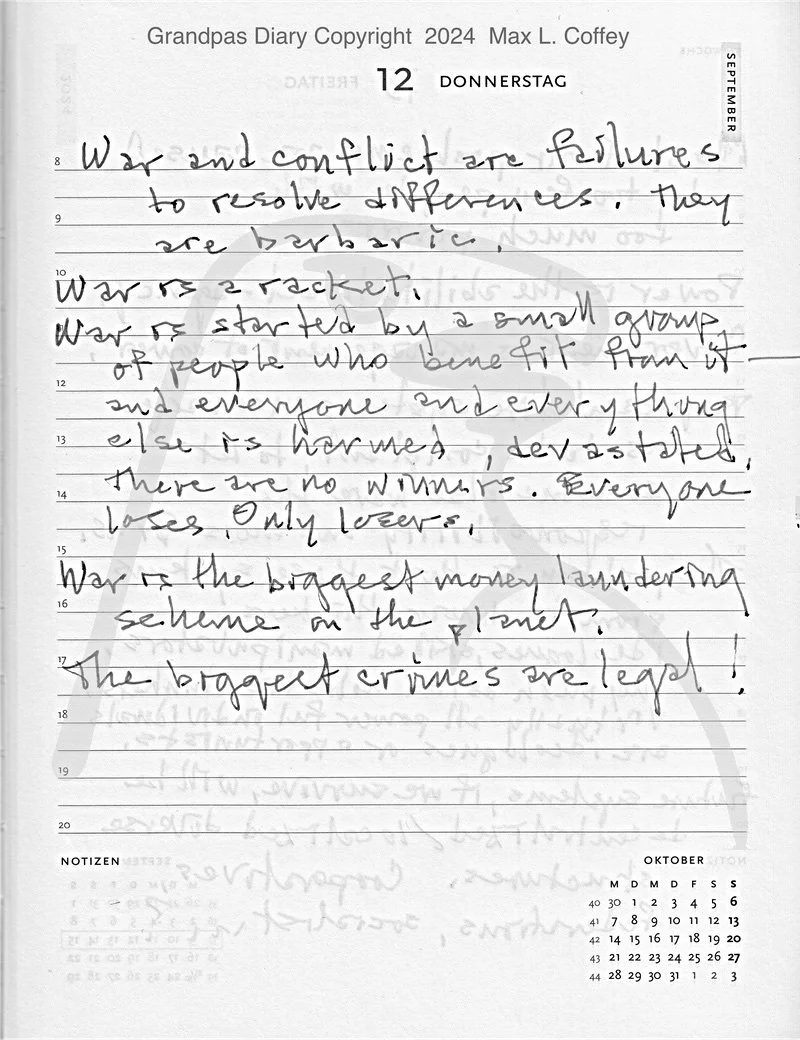 Grandpas Diary Copyright 2024 Max L. Coffey
12 DONNERSTAG
SEPTEMBER
8 War and conflict are failures
to resolve differences. They
9
are barbaric.
10
War is a racket.
War is started by a small group
of people who benefit from it
12
and everyone and everything
13 else is harmed, devastated,
there are no winners. Everyone
14
loses. Only losers.
15
War is the biggest money laundering
16
scheme on the planet.
17
The biggest crimes are legal!
18
19
20
NOTIZEN
OKTOBER
M D M D F S S
40 30 1 2 3 4 5 6
41 7 8 9 10 11 12 13
42 14 15 16 17 18 19 20
43 21 22 23 24 25 26 27
44 28 29 30 31 1 2 3